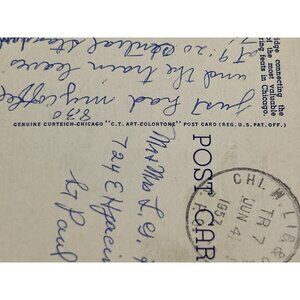 8:30
just had my coffee
and the train leave
at 9:20 Central Standard
idge connecting the
of the most valuable
in Chicago.
GENUINE CURTEICH-CHICAGO "C.T. ART-COLORTONE" POST CARD (REG. U.S. PAT. OFF.)
POST CAR
Mr Mrs L.C.
724 E Hyacin
St Paul
CHI.
TR 7
JUN 4
1957